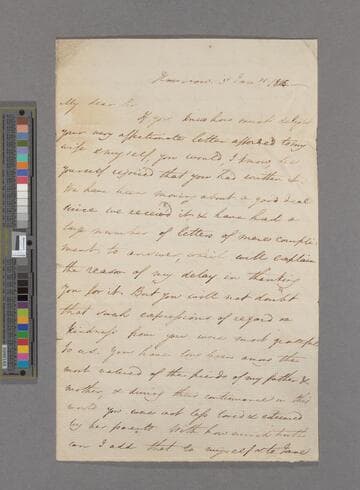 My dear Sir
If you knew how much delight
your very affectionate letter afforded to my
wife & myself, you would I know, be
yourself rejoiced that you had written it.
We have been moving about a good deal
since we received it & have had a
large number of letters of mere compli-
ment to answer, which will explain
the reason of my delay in thanking
you for it. But you will not doubt
that such expressions of regard &
kindness from you were most grateful
to us. You have long been among the
most valued of the friends of my father &
mother, & during their continuance in this
world you was not less loved & esteemed
by her parents. With how much truth
can I add that to myself & to Jane